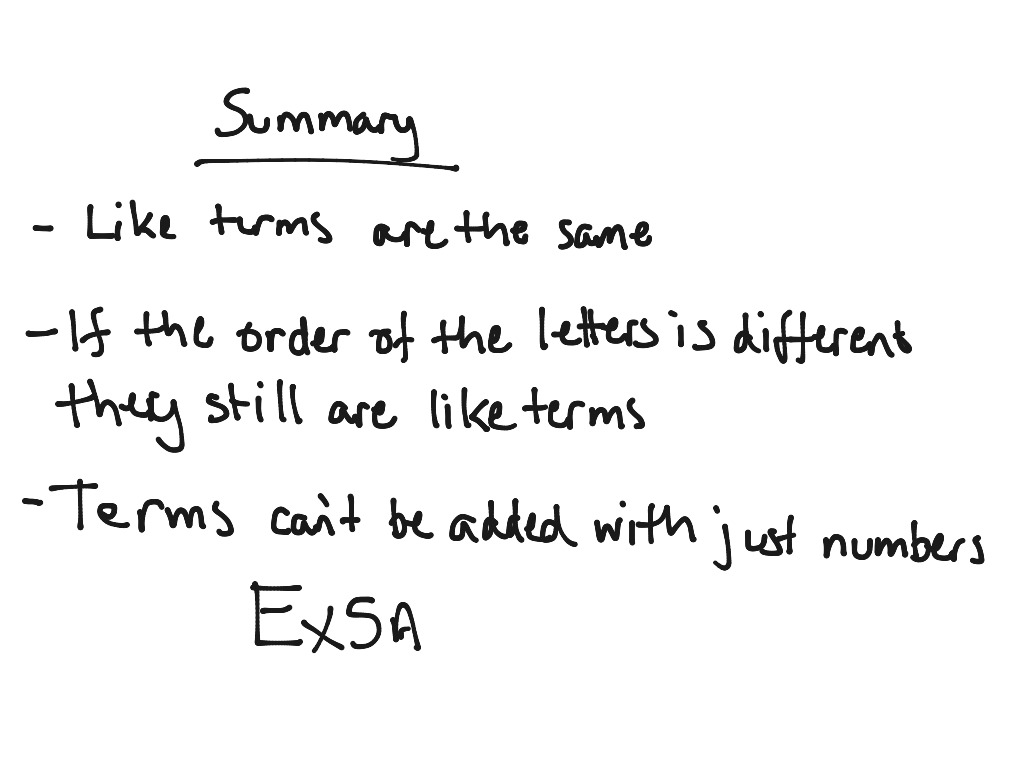 Summary
- Like terms are the same
- If the order of the letters is different
they still are like terms
- Terms can't be added with just numbers
Ex5A